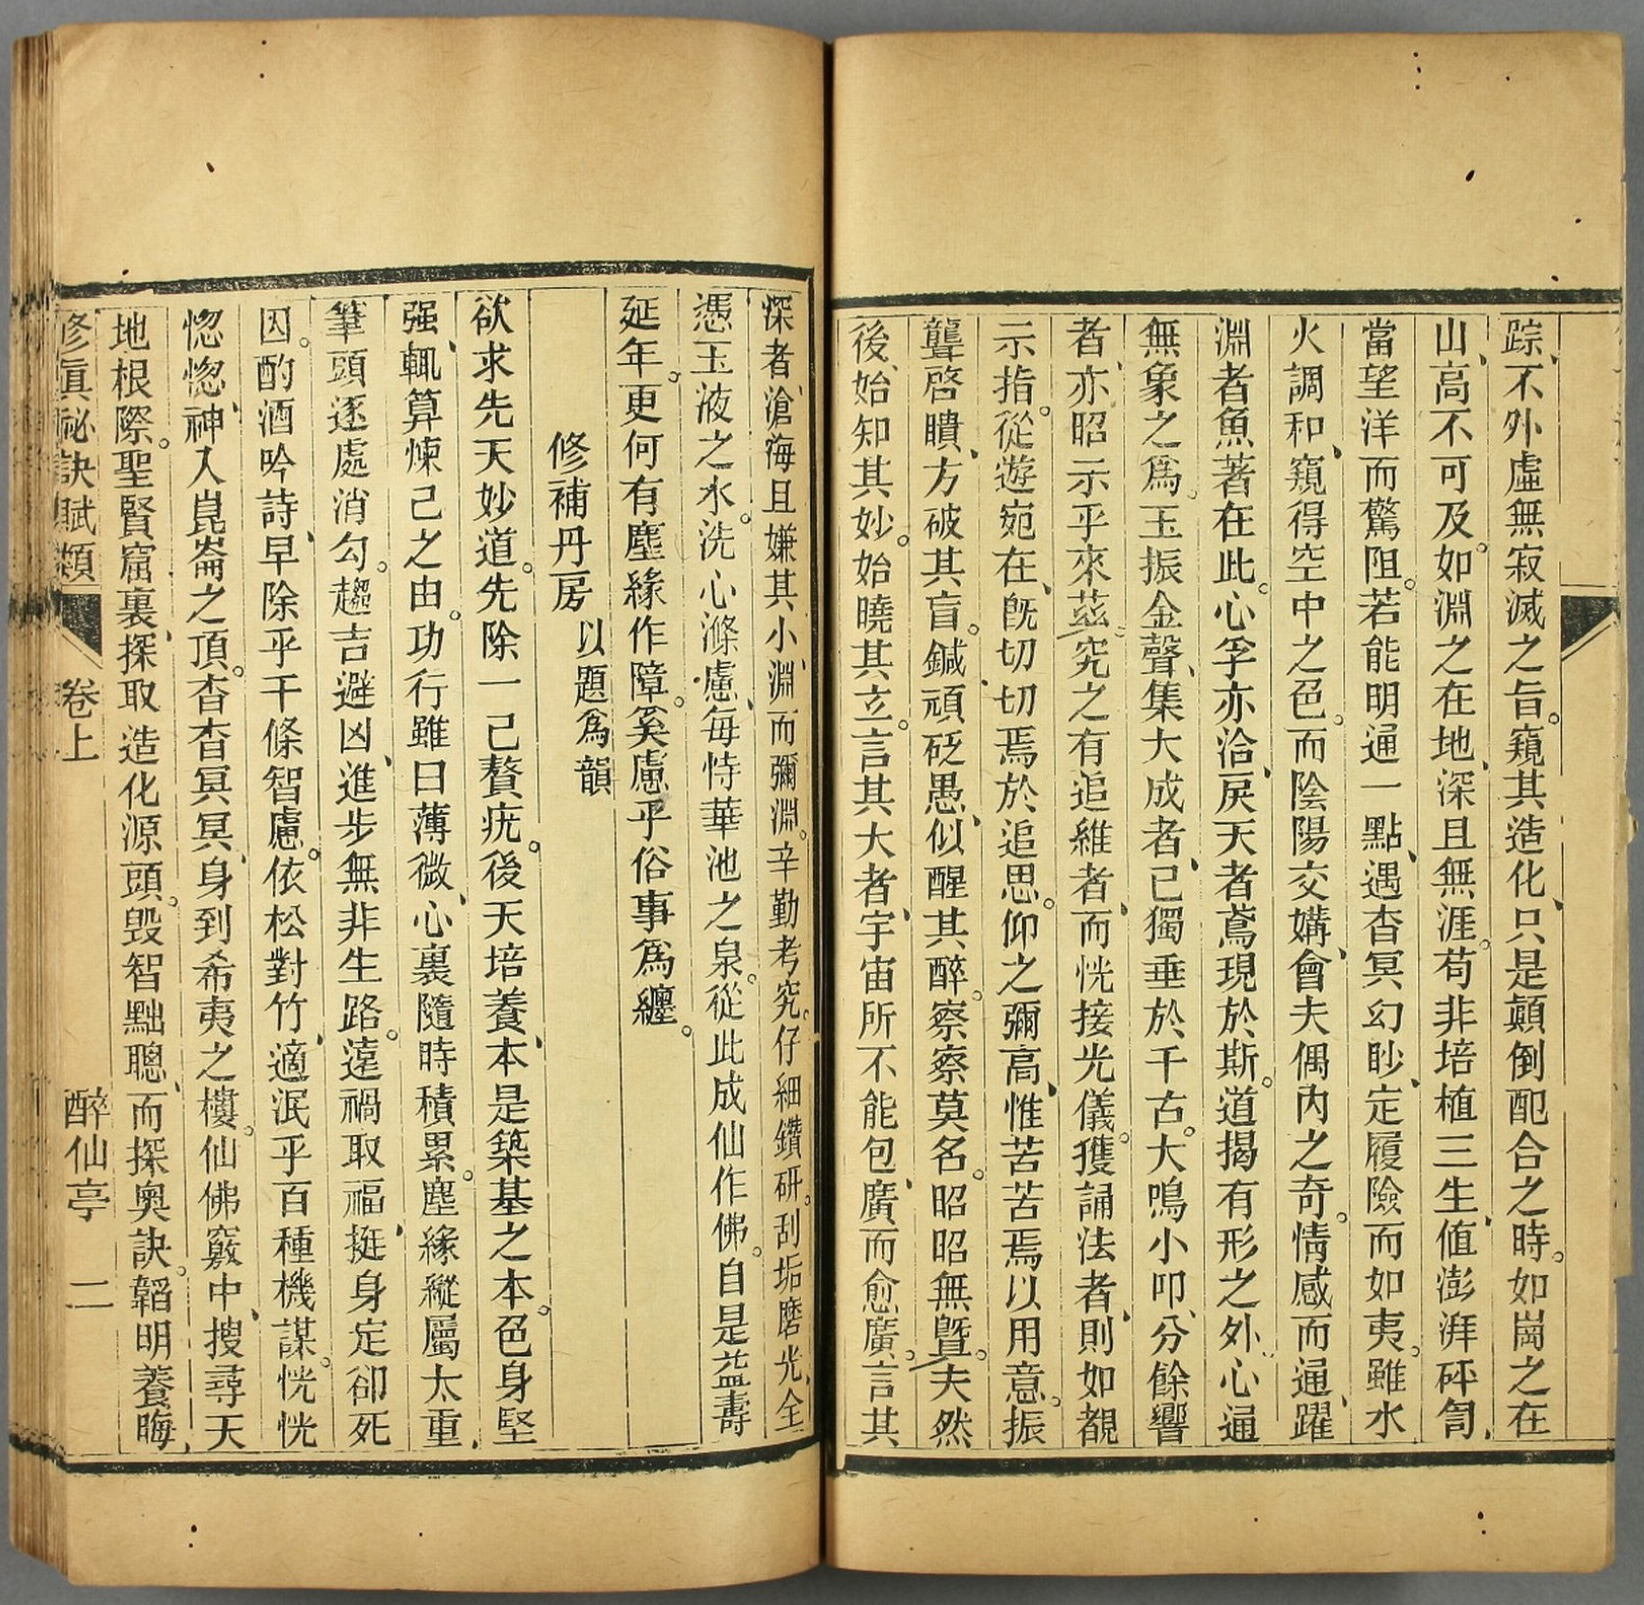 踪、不外虛無寂滅之旨。窺其造化、只是顛倒配合之時。如崗之在
山、高不可及。如淵之在地、深且無涯。苟非培植三生、値澎湃砰訇、
當望洋而驚阻。若能明通一點、遇杳冥幻眇、定履險而如夷。雖水
火調和、窺得空中之色。而陰陽交媾、會夫偶內之奇。情感而通、躍
淵者魚著在此。心孚亦洽、戾天者鳶現於斯。道揭有形之外、心通
無象之爲。玉振金聲、集大成者、已獨垂於千古。大鳴小叩、分餘響
者、亦昭示乎來茲。究之有追維者、而恍接光儀。獲誦法者、則如覩
示指。從遊宛在、旣切切焉於追思。仰之彌高、惟苦苦焉以用意。振
聾啓瞶、方破其盲。鍼頑砭愚、似醒其醉。察察莫名。昭昭無曁。夫然
後、始知其妙。始曉其玄。言其大者、宇宙所不能包、廣而愈廣。言其
深者、滄海且嫌其小、淵而彌淵。辛勤考究。仔細鑽研。刮垢磨光、全
憑玉液之水。洗心滌慮、每恃華池之泉。從此成仙作佛。自是益壽
延年。更何有塵緣作障。奚慮乎俗事爲纏。
修補丹房 以題爲韻
欲求先天妙道。先除一己贅疣。後天培養、本是築基之本。色身堅
强、輒算煉己之由。功行雖曰薄微、心裏隨時積累。塵緣縱屬太重、
筆頭逐處消勾。趨吉避凶、進步無非生路。遠禍取福、挺身定卻死
囚。酌酒吟詩、早除乎千條智慮。依松對竹、適泯乎百種機謀。恍恍
惚惚、神入崑崙之頂。杳杳冥冥、身到希夷之樓。仙佛竅中、搜尋天
地根際。聖賢窟裏、探取造化源頭。毁智黜聰、而探奧訣。韜明養晦、
修眞祕訣賦類 卷上 醉仙亭 二